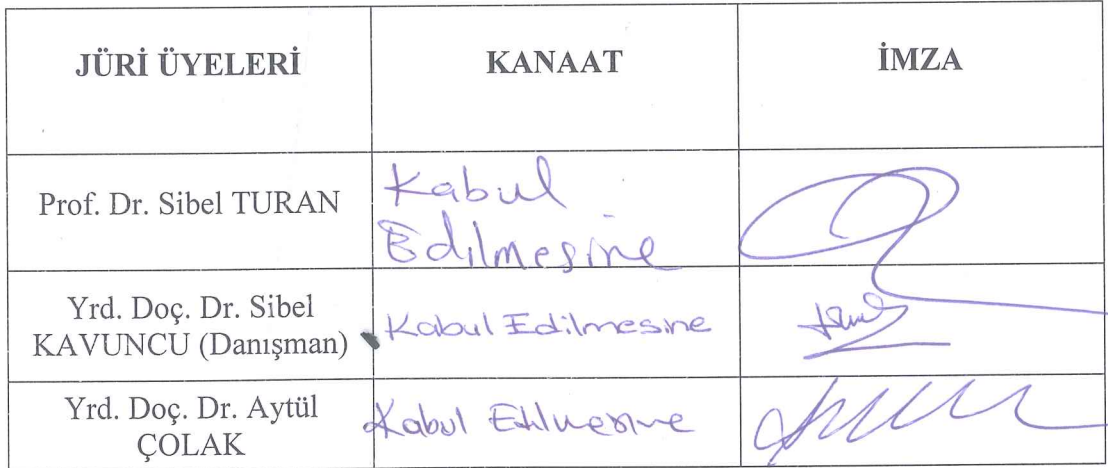 JÜRİ ÜYELERİ KANAAT İMZA
Prof. Dr. Sibel TURAN Kabul
Edilmesine
Yrd. Doç. Dr. Sibel
KAVUNCU (Danışman) Kabul Edilmesine
Yrd. Doç. Dr. Aytül
ÇOLAK Kabul Edilmesine